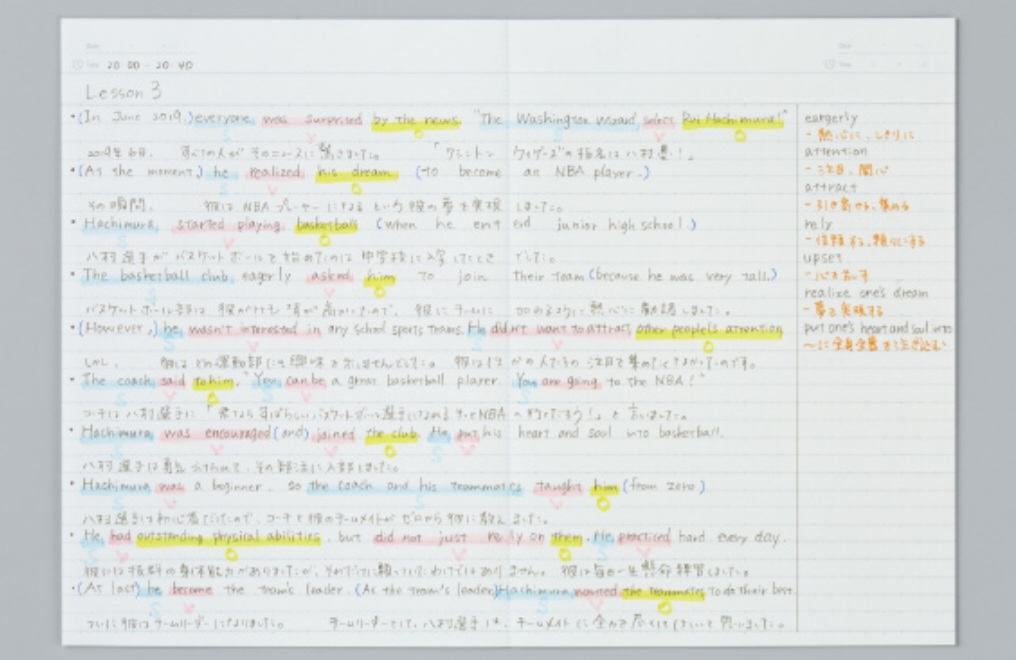 20:00 - 20:40
Lesson 3
・(In June 2019,) everyone was surprised by the news "The Washington Wizard select Rui Hachimura!"
2019年6月、 すべての人が そのニュースに 驚きました。 「ワシントン ウィザーズ の指名は 八村塁!」
・(At the moment,) he realized his dream (to become an NBA player.)
その瞬間、 彼は NBA プレーヤーになる という 彼の 夢を 実現 しました。
・Hachimura started playing basketball (when he junior high school.)
八村選手が バスケットボールを 始めたのは 中学校に 入学したとき でした。
・The basketball club eagerly asked him to join their team (because he was very tall.)
バスケットボール部は 彼が 背が 高かったので、 彼に チームに 熱心に 勧誘しました。
・(However,) he wasn't interested in any school sports teams. He didn't want to attract other people's attention
しかし、 彼は どの運動部にも 興味を 示しませんでした。 彼は 注目を 集めたくなかったのです。
・The coach said to him, "You can be a great basketball player. You are going to the NBA!"
コーチは 八村選手に 「 すばらしい バスケットボール選手になれる NBA へ 行くだろう!」 と 言いました。
・Hachimura was encouraged (and) joined the club. He put his heart and soul into basketball.
八村選手は 勇気 づけられて、その部活に入部しました。
・Hachimura was a beginner, so the coach and his teammates taught him (from zero.)
八村選手は初心者だったので、コーチと彼のチームメイトが ゼロから 彼に教え ました。
・He had outstanding physical abilities, but did not just rely on them. He practiced hard every day.
彼には 抜群の 身体能力が ありましたが、それだけに 頼っていたわけではあり ません。 彼は 毎日一生懸命 練習しました。
・(At last) he became the team's leader. (As the team's leader) Hachimura wanted the teammates to do their best.
ついに 彼は チームリーダーに なりました。 チームリーダーとして、八村選手は、チームメイトに 全力を 尽くしてほしいと 思いました。
eargerly
- 熱心に、しきりに
attention
- 注目、関心
attract
- 引き寄せる、集める
rely
- 信頼する、頼りにする
upset
- 心を乱す
realize one's dream
- 夢を実現する
put one's heart and soul into
~に全身全霊を注ぎ込む